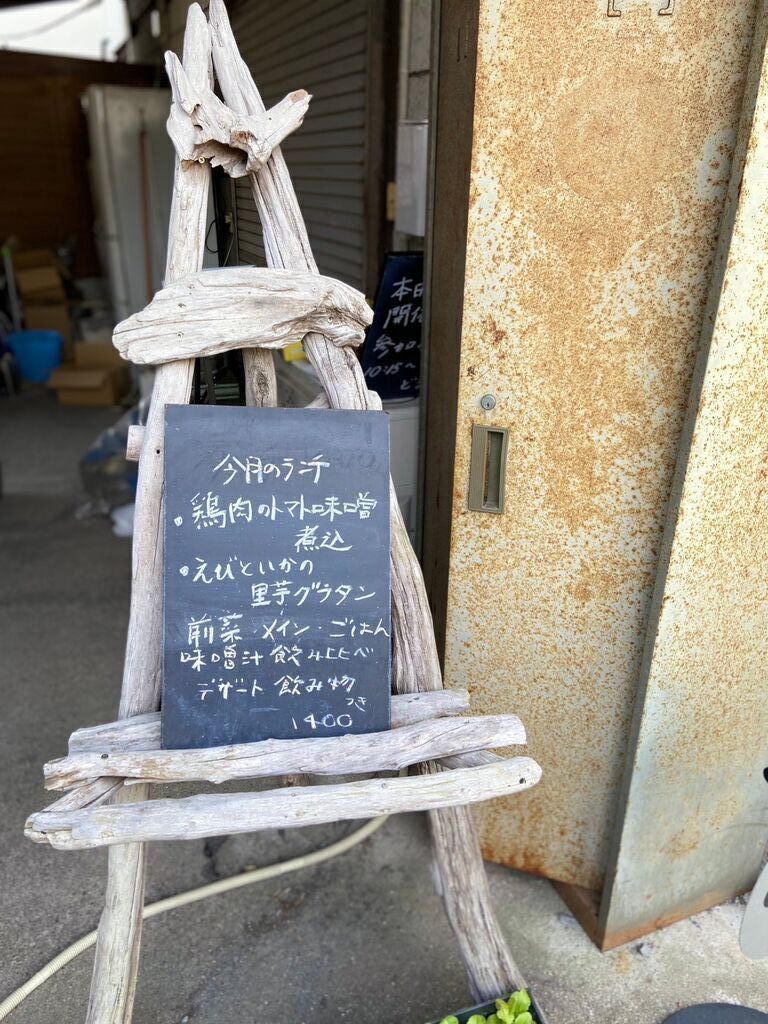 今月のランチ
・鶏肉のトマト味噌
煮込
・えびといかの
里芋グラタン
前菜・メイン・ごはん
味噌汁 飲み比べ
デザート 飲み物
つき
1400
本日
開催
参加
10:15〜